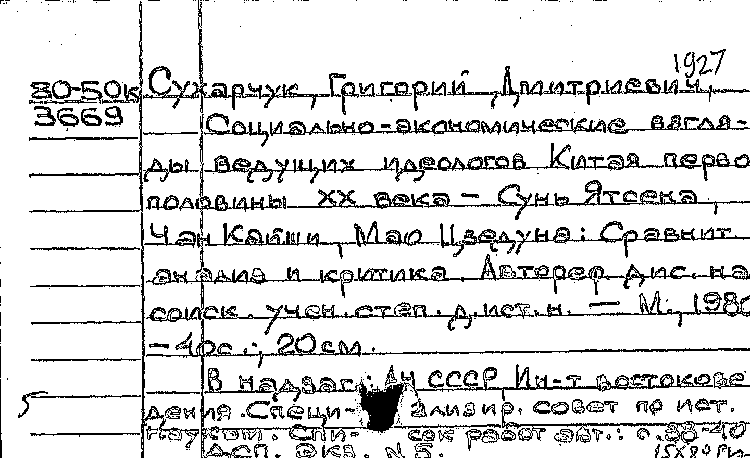 1927
80-50к Сухарчук, Григорий Дмитриевич,
3669
Социально-экономические взгля-
ды ведущих идеологов Китая перво
половины XX века – Сунь Ятсена,
Чан Кайши, Мао Цзедуна: Сравнит.
анализ и критика. Автореф. дис. на
соиск. учен. степ. д. ист. н. — М., 1980
– 40 с.; 20 см.
В надзаг.: АН СССР, Ин-т востокове
дения. Специ- ализир. совет по ист.
наукам. Спи- сок работ авт.: с. 38-40
ДСП. Экз. N 5.